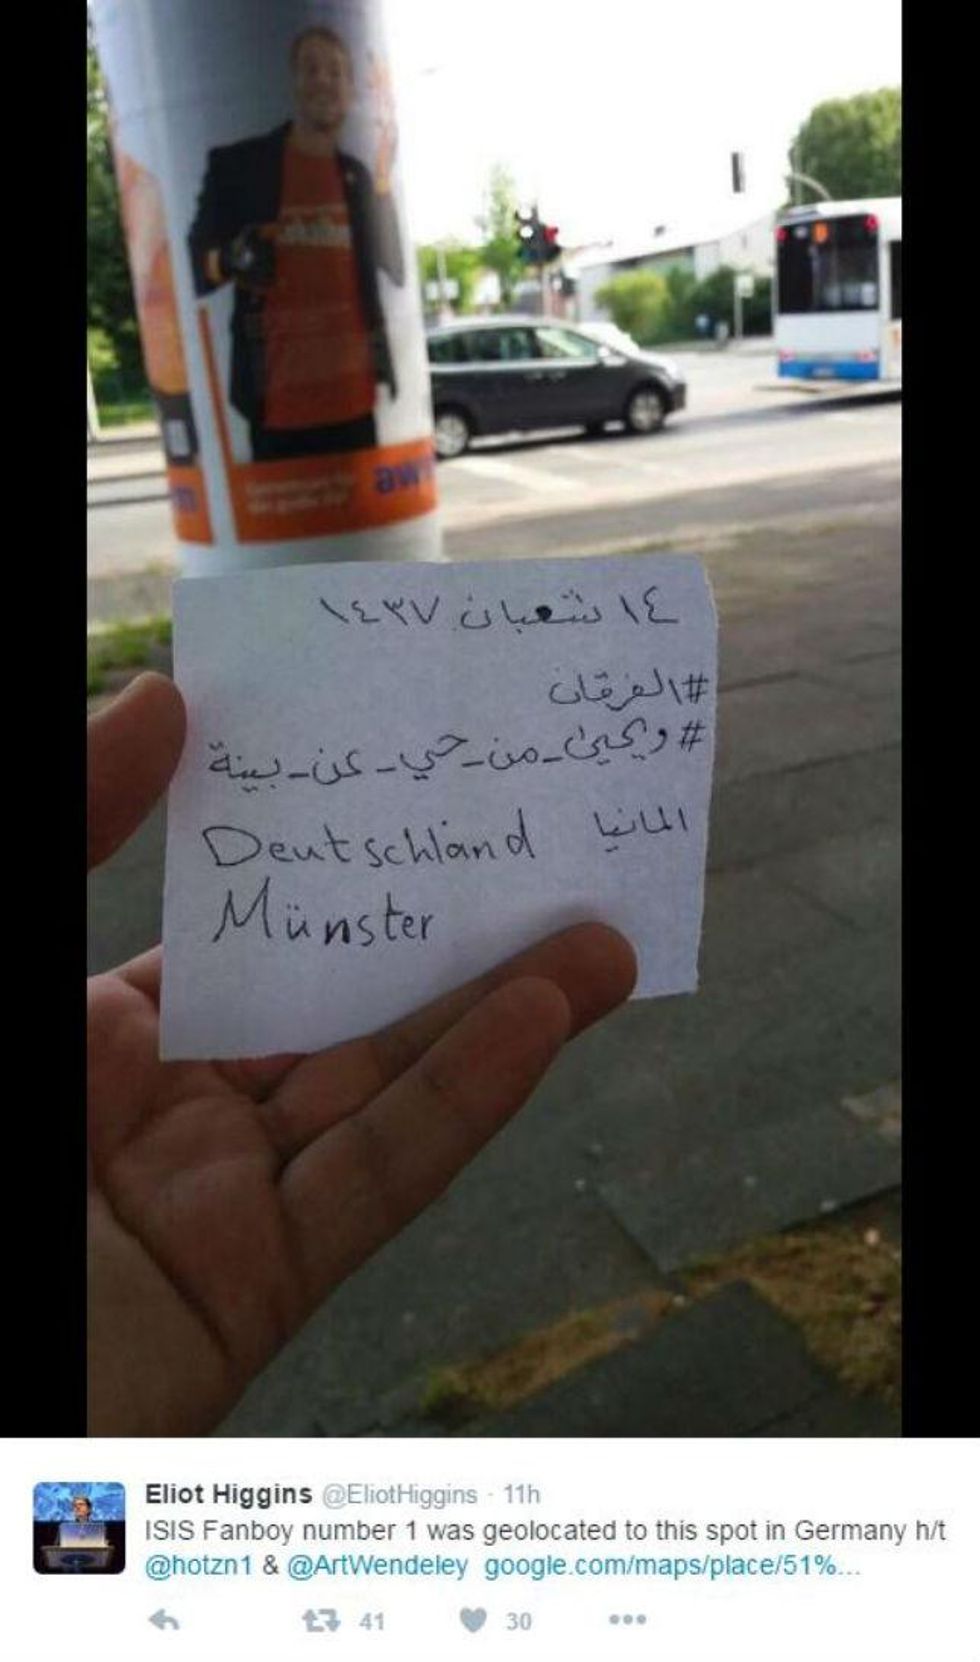 ١٤ شعبان ١٤٣٧
#الفرقان
#ويحيى_من_حي_عن_بينة
المانيا Deutschland
Münster
Eliot Higgins @EliotHiggins · 11h
ISIS Fanboy number 1 was geolocated to this spot in Germany h/t
@hotzn1 & @ArtWendeley google.com/maps/place/51%...
41 30